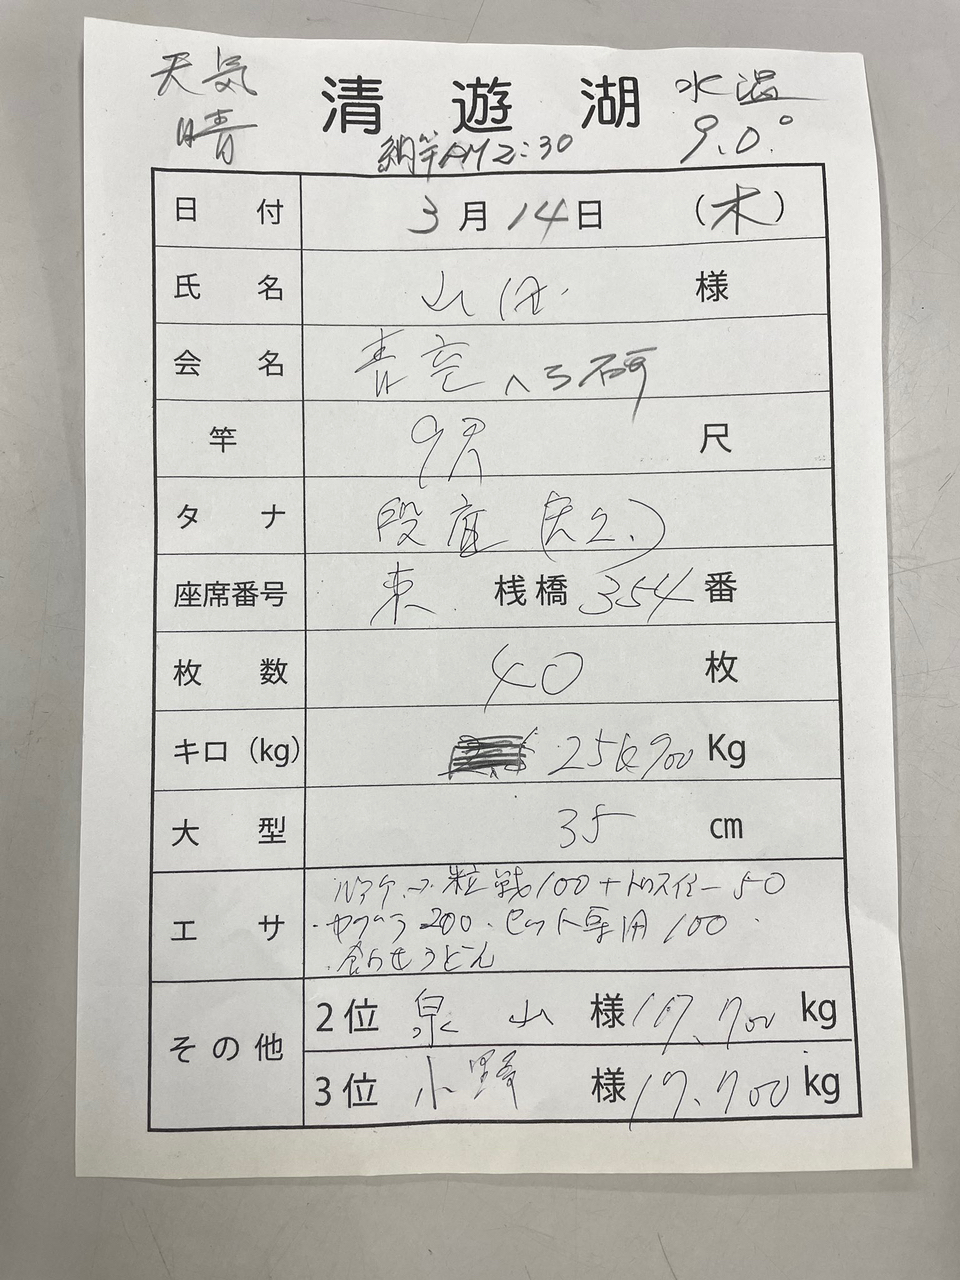 天気 清遊湖 水温
晴 納竿AM2:30 9.0°
日付 3月14日 (木)
氏名 山田 様
会名 青空へら研
竿 9尺 尺
タナ 段底
座席番号 東 桟橋 354番
枚数 40 枚
キロ(kg) 25k900 Kg
大型 35 cm
粒戦100+トロスイミー50
エサ 200・セット専用100
・食わせうどん
2位 泉山 様 kg
その他
3位 小野 様 17.700kg